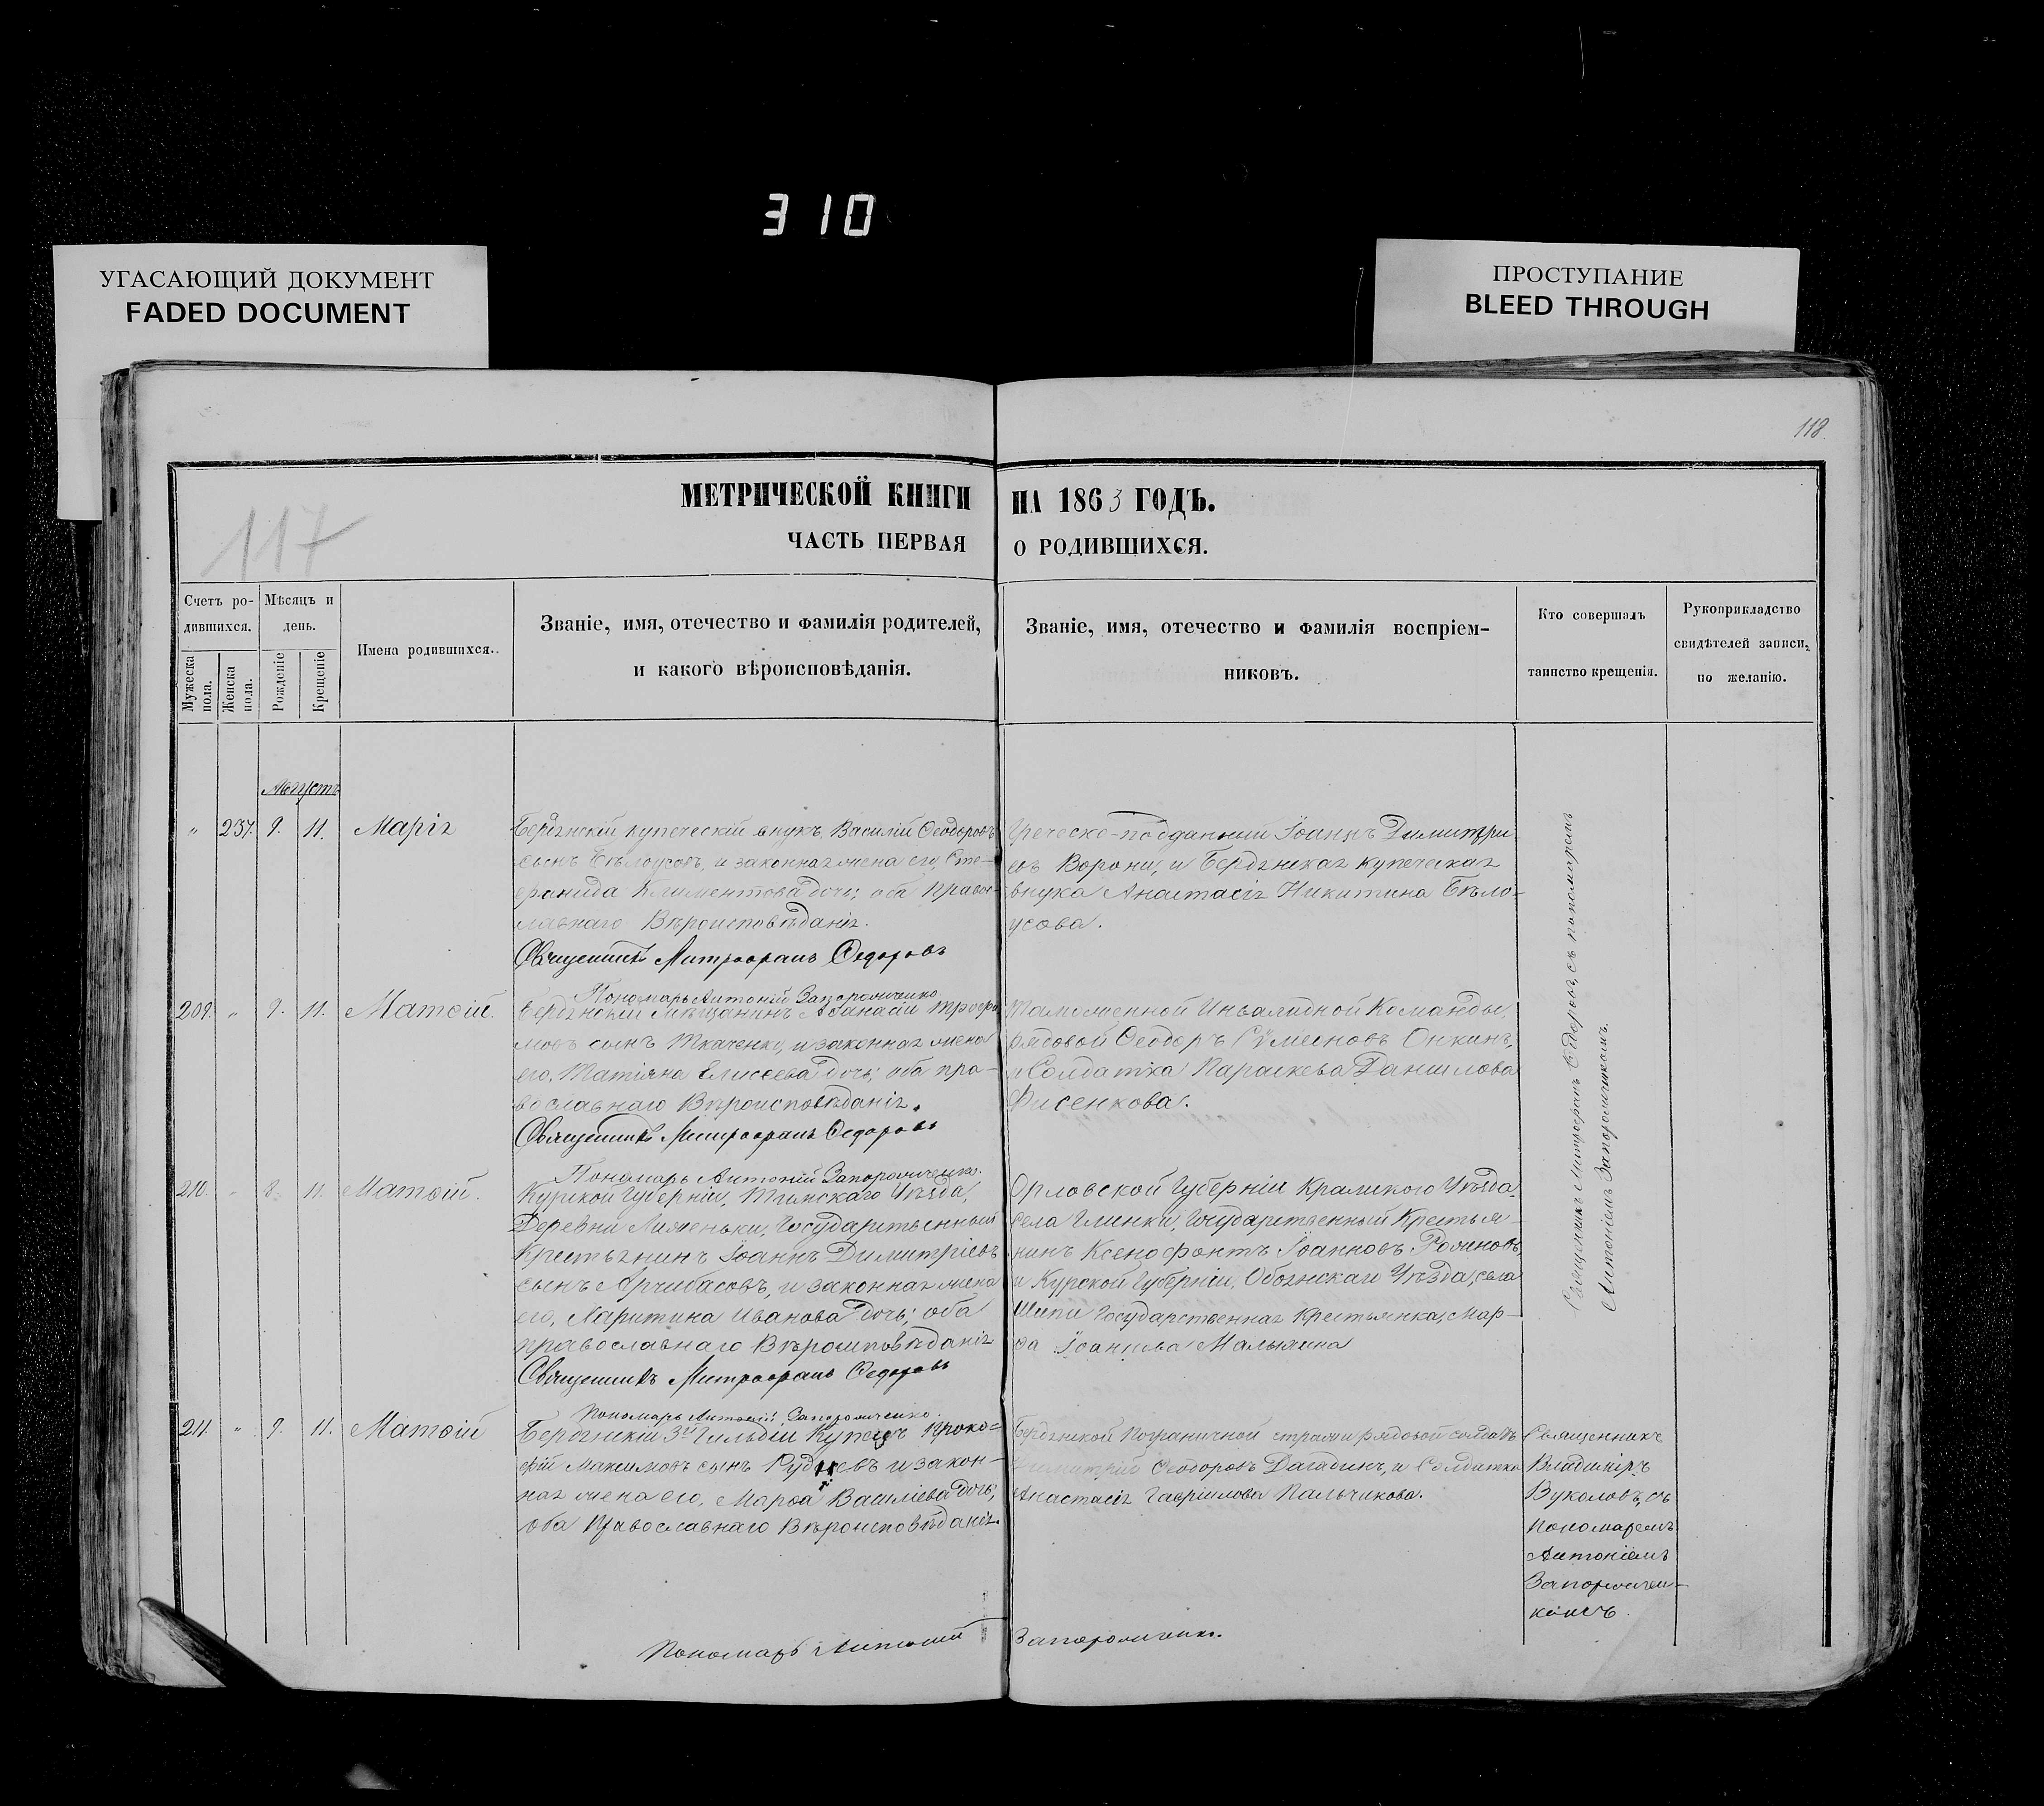 310
УГАСАЮЩИЙ ДОКУМЕНТ
FADED DOCUMENT
ПРОСТУПАНИЕ
BLEED THROUGH
118
117
МЕТРИЧЕСКОЙ КНИГИ НА 1863 ГОДЪ.
ЧАСТЬ ПЕРВАЯ О РОДИВШИХСЯ.
Счетъ ро-
дившихся.
Мужеска пола.
Женска пола.
Мѣсяцъ и
день.
Рожденіе
Крещеніе
Имена родившихся.
Званіе, имя, отечество и фамилія родителей,
и какого вѣроисповѣданія.
Званіе, имя, отечество и фамилія воспріем-
никовъ.
Кто совершалъ
таинство крещенія.
Рукоприкладство
свидѣтелей записи,
по желанію.
Августъ
" 237. 9. 11. Марія
Бердянскій купеческій внукъ Василій Ѳеодоровъ
сынъ Бѣлоусовъ, и законная жена его, Сте-
фанида Климентова дочь; оба правос-
лавнаго Вѣроисповѣданія.
Священникъ Митрофанъ Ѳедоровъ
Пономарь Антоній Запорожченко
Греческо-подданный Іоаннъ Димитрі-
евъ Ворони, и Бердянская купеческая
внука Анастасія Никитина Бѣло-
усова.
209. " 9. 11. Матѳій.
Бердянскій Мѣщанинъ Аѳанасій Трофи-
мовъ сынъ Ткаченко, и законная жена
его, Татіяна Елисеева дочь; оба пра-
вославнаго Вѣроисповѣданія.
Священникъ Митрофанъ Ѳедоровъ
Пономарь Антоній Запорожченко.
Таможенной Инвалидной Команды,
рядовой Ѳеодоръ Онкинъ,
и Солдатка Параскева Даніилова
Фисенкова.
210. " 8. 11. Матѳій.
Курской Губерніи, Тимскаго Уѣзда,
Деревни Государственный
Крестьянинъ Іоаннъ Димитріевъ
сынъ Арчибасовъ, и законная жена
его, Иванова дочь; оба
православнаго Вѣроисповѣданія
Священникъ Митрофанъ Ѳедоровъ
Пономарь Антоній Запорожченко.
Орловской Губерніи Уѣзда,
села Глинки, Государственный Крестья-
нинъ Ксенофонтъ Іоанновъ
и Курской Губерніи, Обоянскаго Уѣзда, села
Шипи Государственная Крестьянка, Мар-
ѳа Іоаннова Малыхина
Священникъ Митрофанъ Ѳедоровъ съ пономаремъ
Антоніемъ Запорожченкомъ.
211. " 9. 11. Матѳій
Бердянскій 3й Гильдіи Купецъ Проко-
фій Максимовъ сынъ Рудневъ и закон-
ная жена его, Марѳа Василіева дочь;
оба Православнаго Вѣроисповѣданія.
Бердянской Пограничной стражи рядовой солдатъ
Димитрій Ѳеодоровъ и Солдатка
Анастасія Гавріилова Пальчикова.
Священникъ
Владиміръ
Вуколовъ, съ
Пономаремъ
Антоніемъ
Запорожчен-
комъ.
Пономарь Антоній Запорожченко.